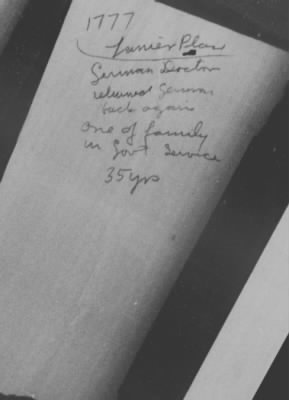 1777
Lanier Place
German Doctor
returned German
back again
one of family
in Govt Service
35 yrs